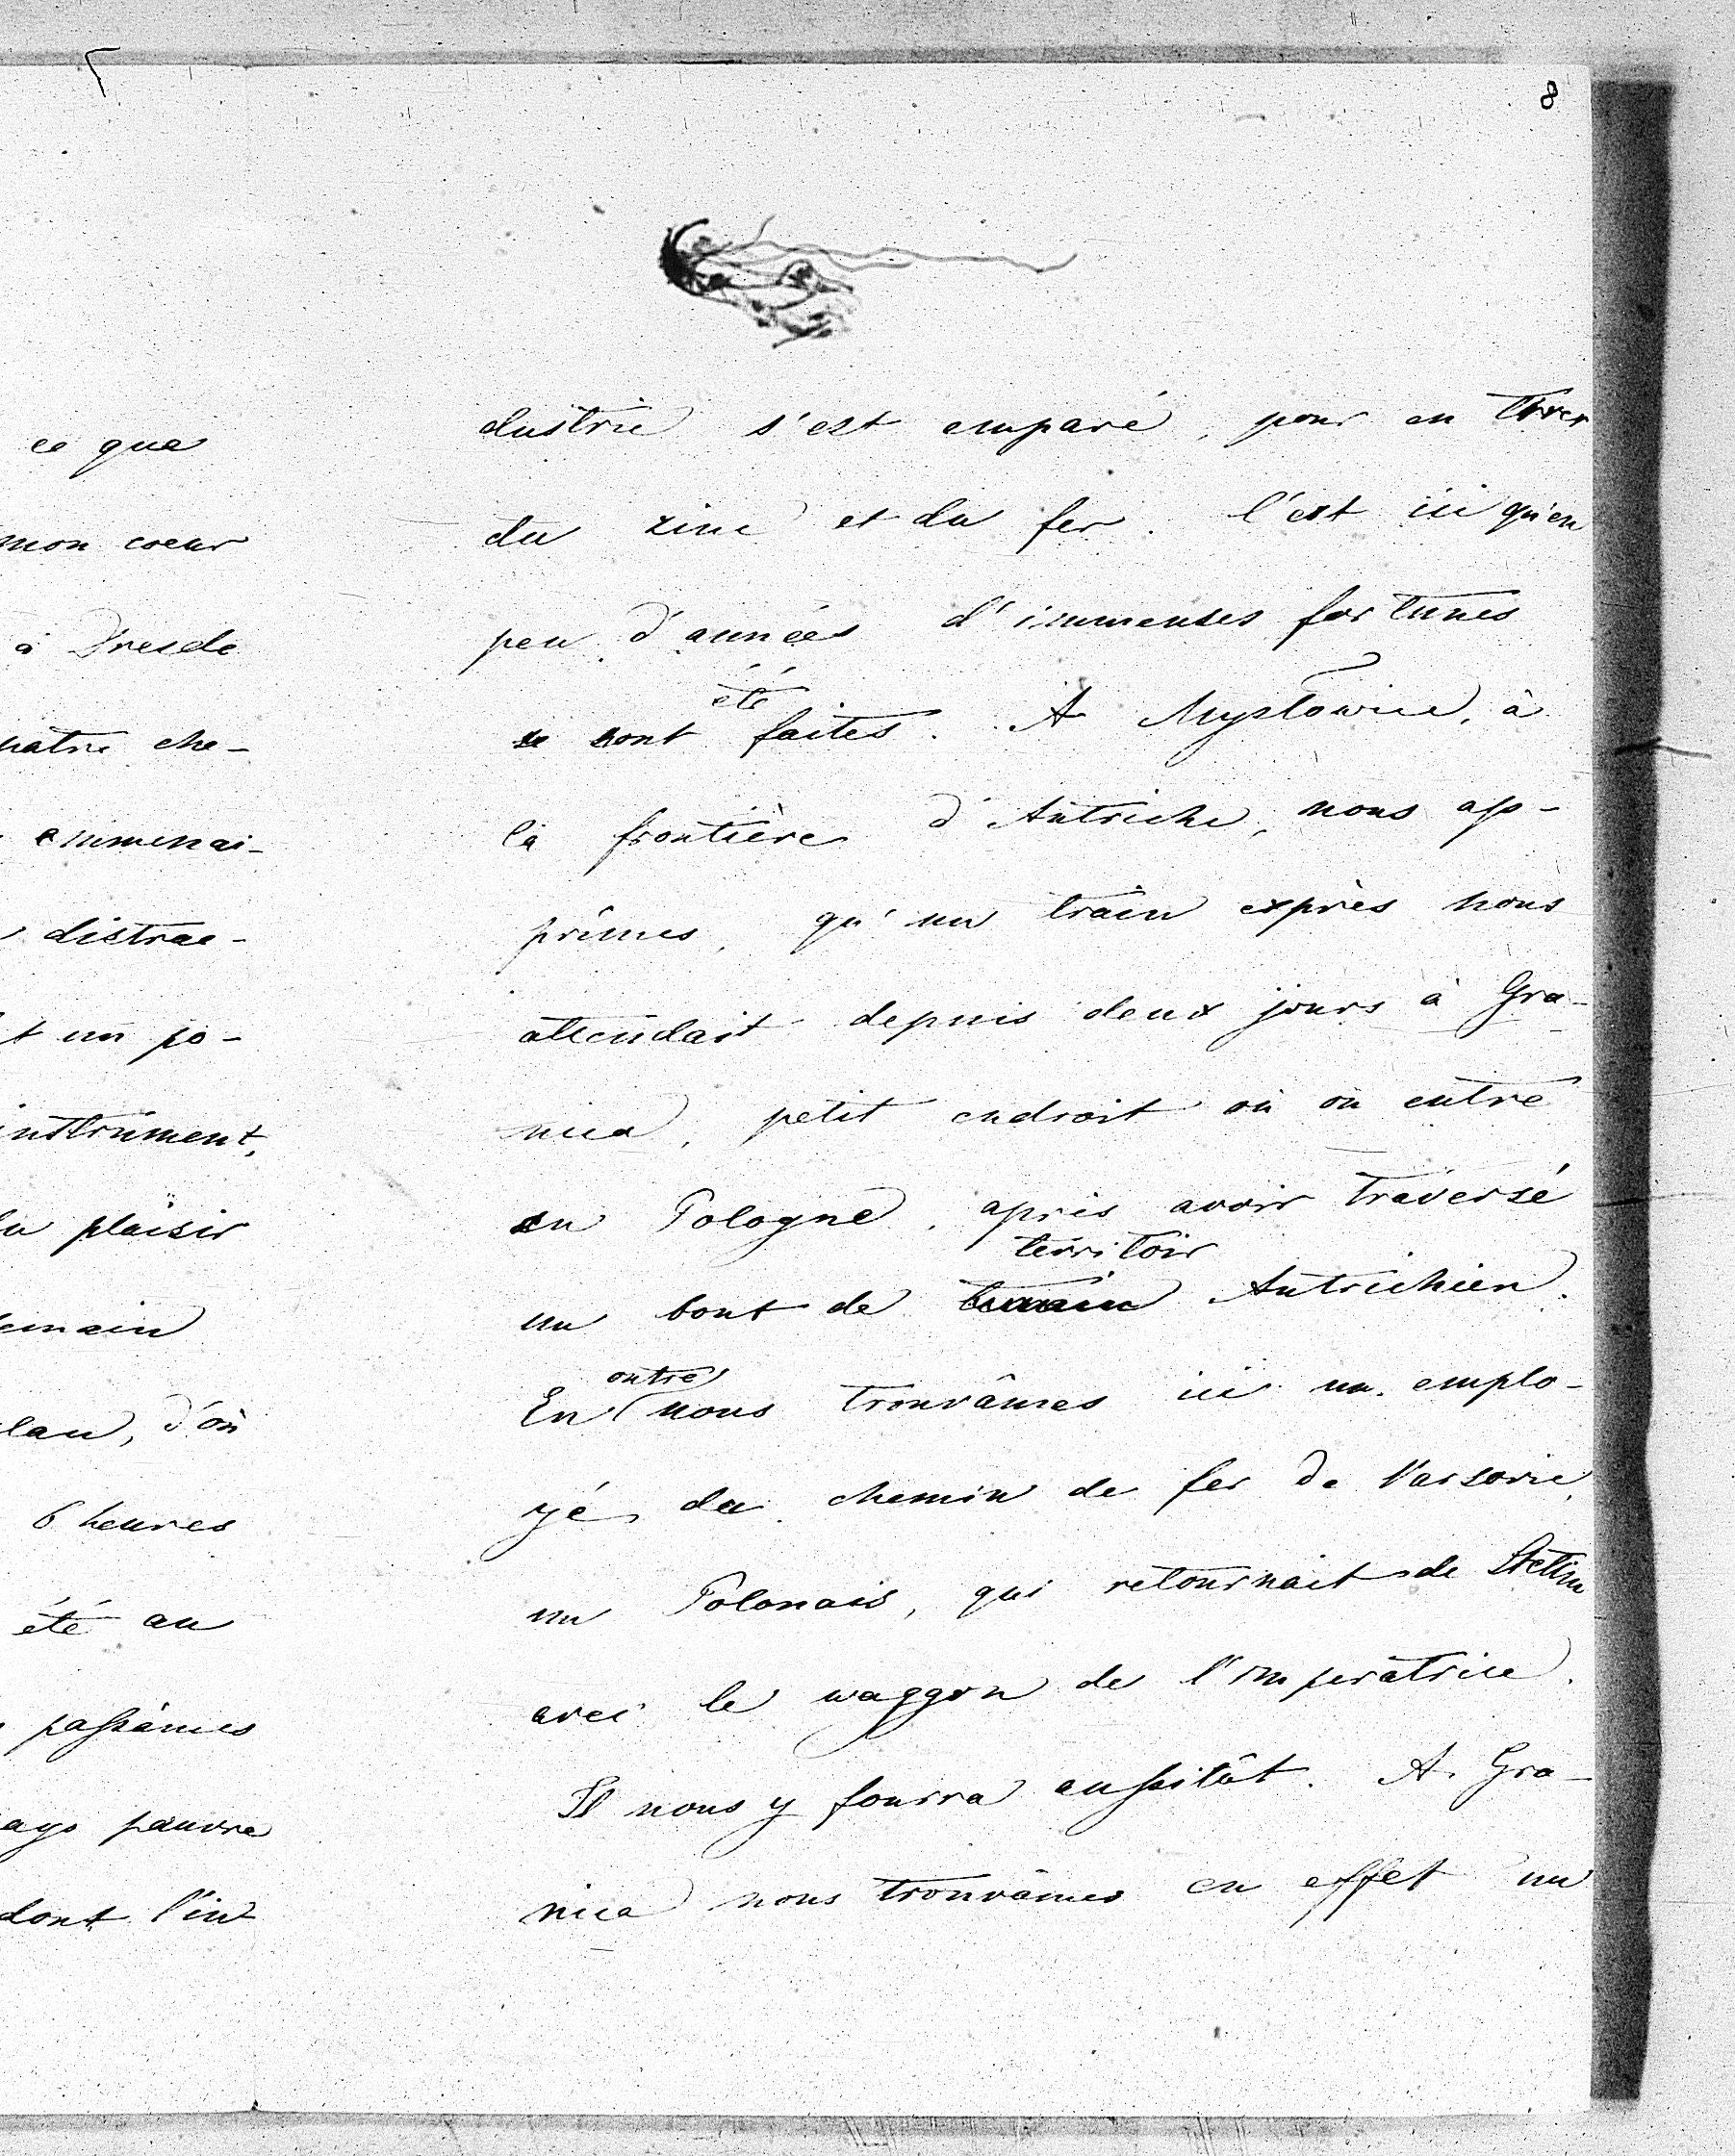 ce que
mon coeur
à Dresde
che-
emmenai-
distrac-
t un po-
instrument,
plaisir
d'où
6 heures
été au
passâmes
pauvre
dont l'in
8
dustrie s'est emparé, pour en tirer
du zinc et du fer. C'est ici qu'en
peu d'années d'immenses fortunes
été
se sont faites. A Myslowice, à
la frontière d'Autriche, nous ap-
prîmes, qu'un train exprès nous
attendait depuis deux jours à Gra-
nica, petit endroit où on entre
en Pologne, après avoir traversé
territoir
un bout de terrain Autrichien.
outre
En nous trouvâmes ici un emplo-
yé du chemin de fer de Varsovie,
un Polonais, qui retournait de Stettin
avec le waggon de l'impératrice.
Il nous y fourra aussitôt. A Gra-
nica nous trouvâmes en effet un